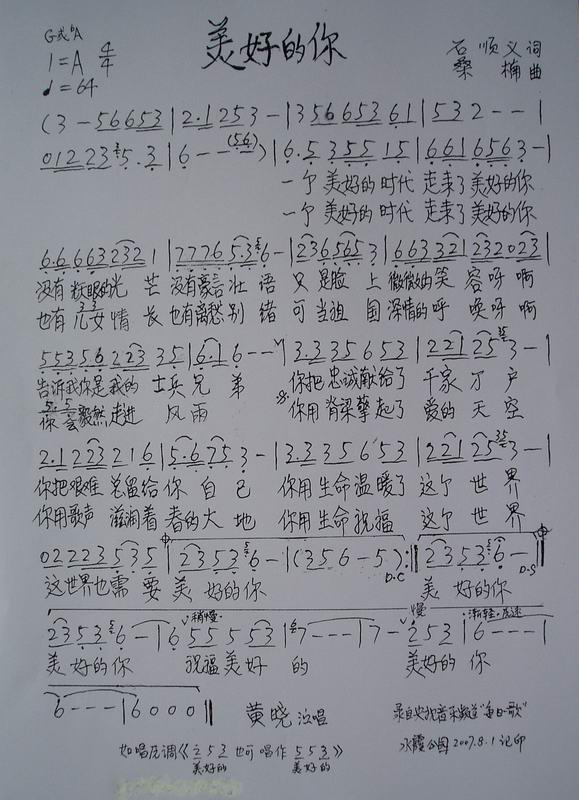 美好的你
G或♭A
1=A 4/4
♩=64
石顺义 词
桑楠 曲
(3 - 56653 | 2·1 253 - | 356653 61 | 532 - - |
012235·3 | 6 - - (56) | 6·5 355 15 | 6616563 - |
一个 美好的 时代 走来了 美好的你
一个 美好的 时代 走来了 美好的你
6·6663232 1 | 77765·36 - | 236565 3 | 663321232023 |
没有 耀眼的光 芒 没有豪言 壮 语 又 是脸 上 微微的笑 容呀 啊
也有 儿女 情 长 也有离愁 别 绪 可 当祖 国 深情的呼 唤呀 啊
5535·6223 35 | 6·1 6 - - | 3·335653 | 221253 - |
告诉我你是我的 士兵 兄 弟 你把 忠诚献给了 千家 万 户
你会毅然走进 风雨 你用 脊梁擎起了 爱的 天 空
2·1223216 | 5·6753 - | 3·335653 | 221253 - |
你把艰难 总留给 你 自 己 你用 生命温暖了 这个 世 界
你用歌声 滋润着 着的大 地 你用 生命祝福 这个 世 界
02223535 | 23536 - | (356 - 5) :‖ 23536 - ‖
D.C D.S
这世界也需 要 美 好的你 美 好的你
稍慢 慢 渐轻·及速
23536 - | 655553 | 7 - - - | 7 - 253 | 6 - - - |
美 好的你 祝福 美好 的 美好的 你
6 - - - | 6000 ‖
黄晓 演唱
录自央视音乐频道“每日一歌”
2007.8.1 记印
如唱G调《253 也可唱作 553》
美好的 美好的